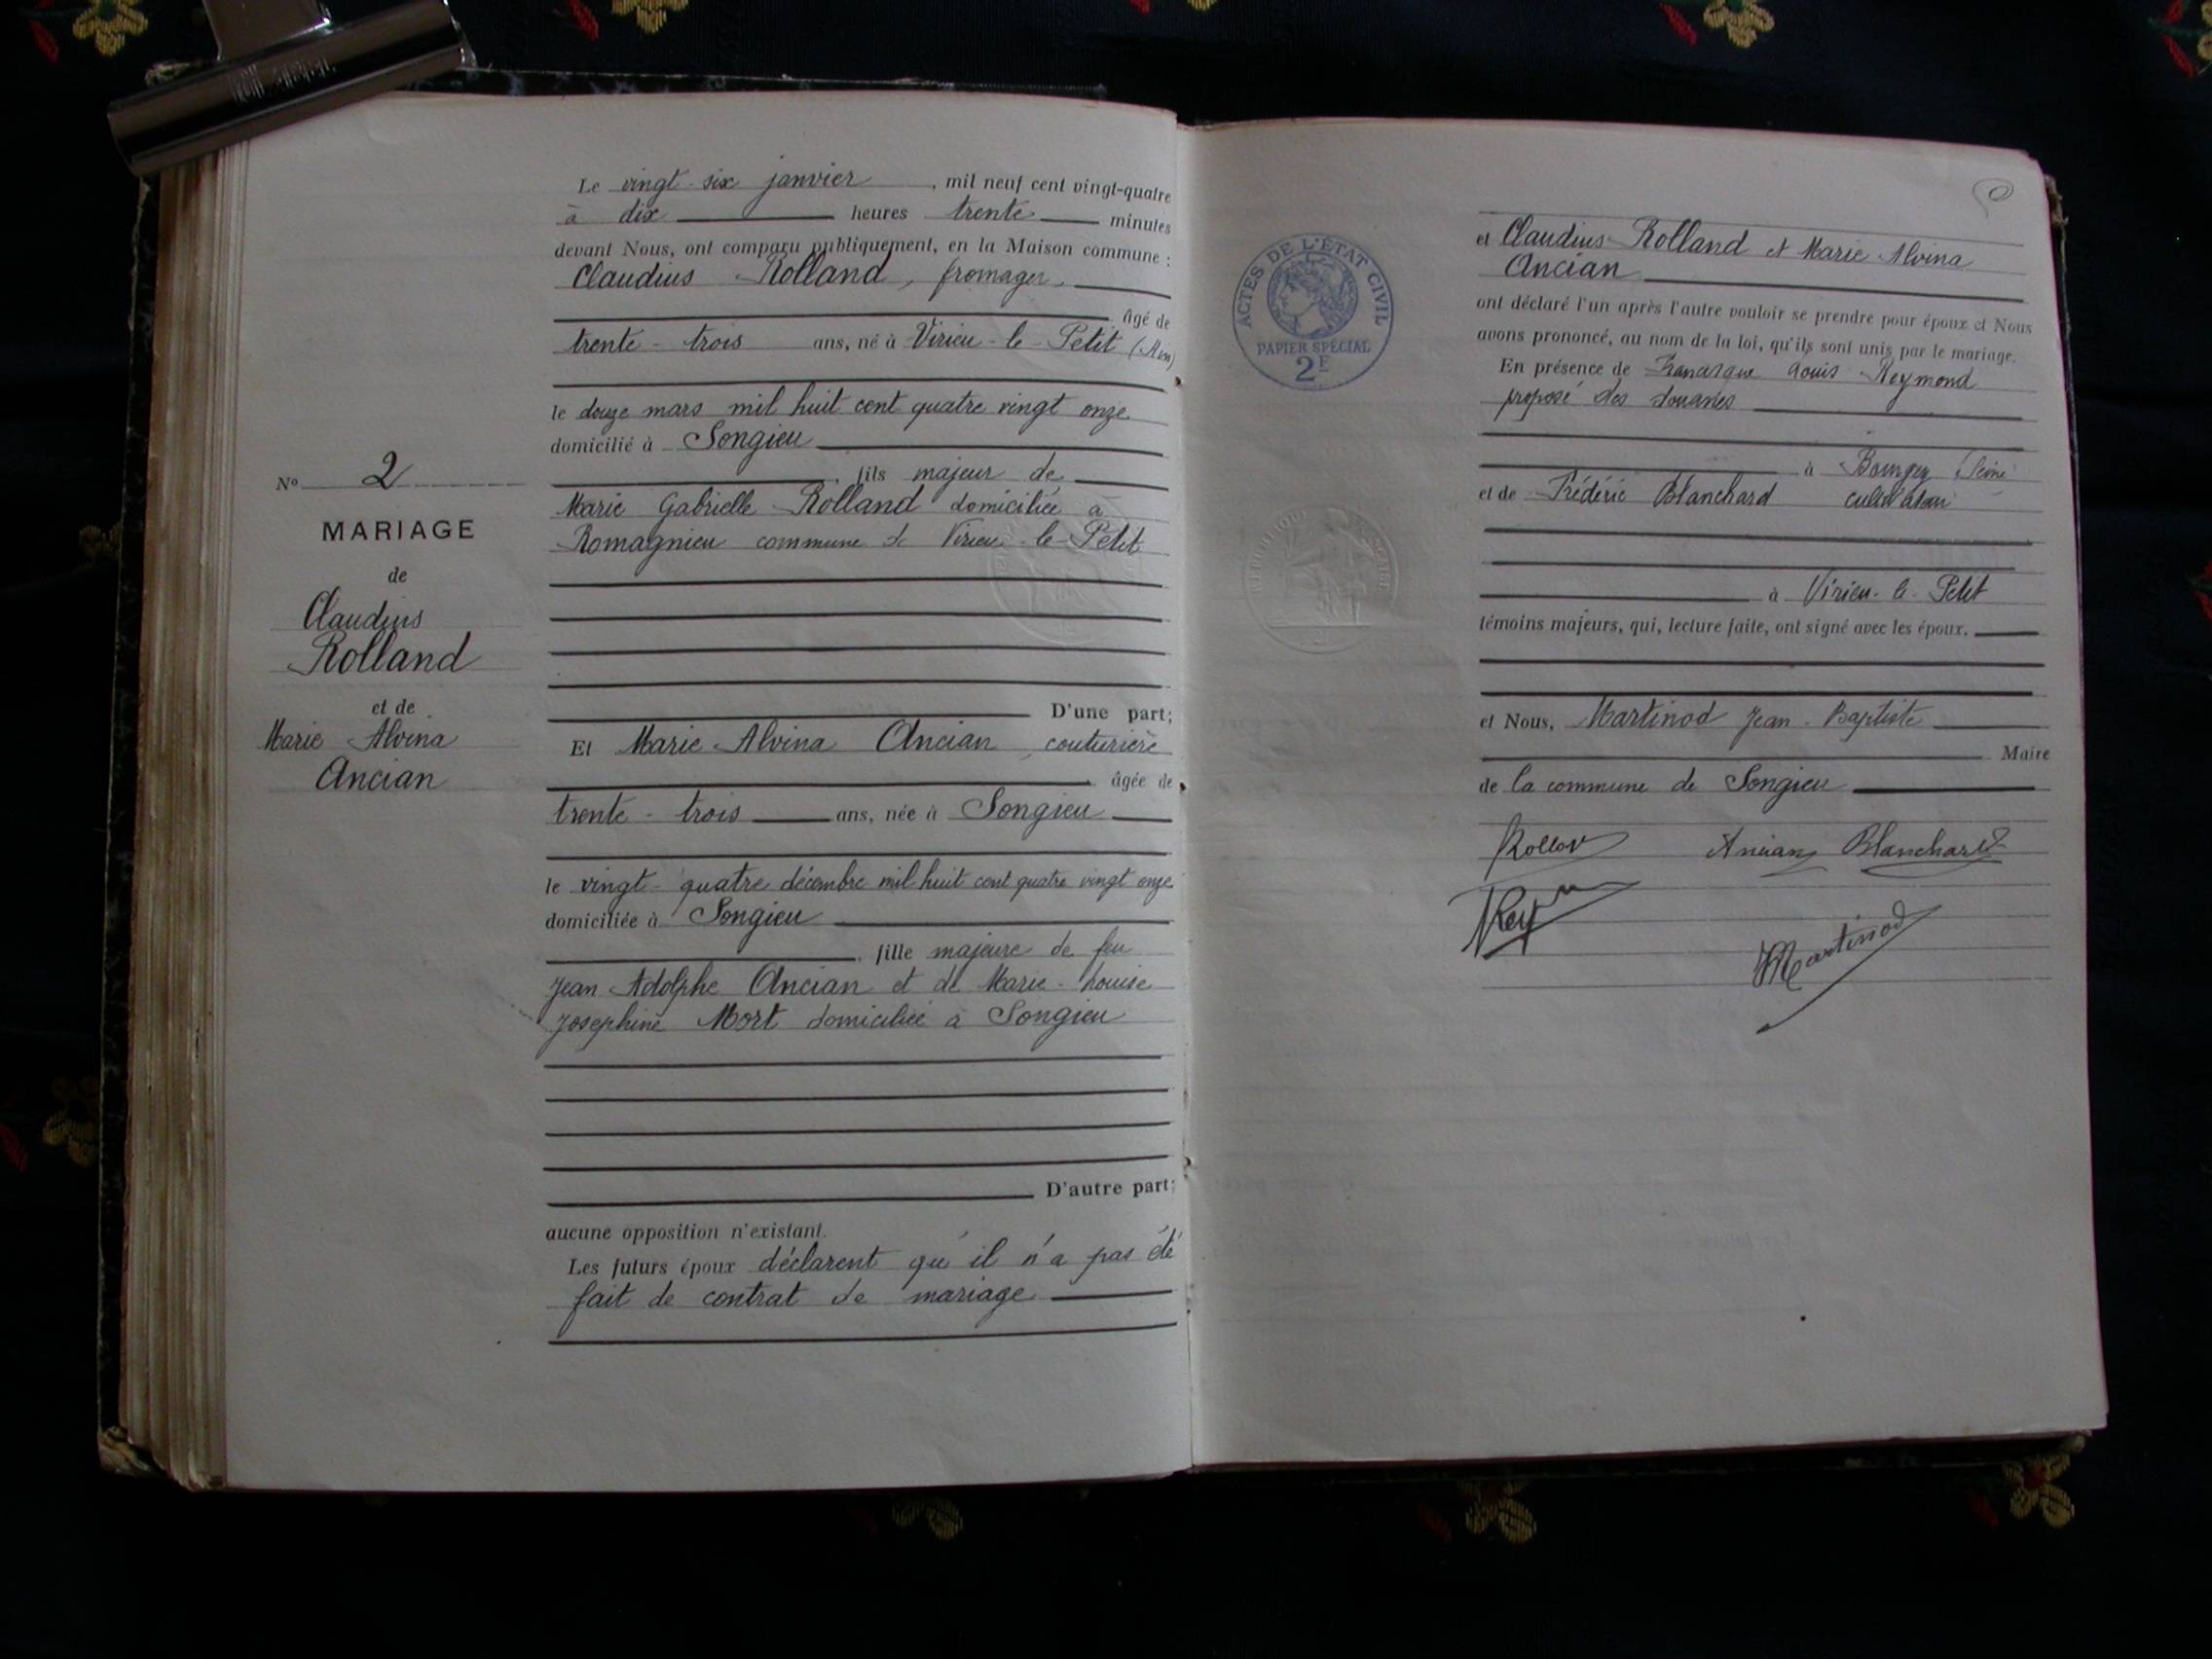 Le vingt-six janvier, mil neuf cent vingt-quatre
à dix heures trente minutes
devant Nous, ont comparu publiquement, en la Maison commune :
Claudius Rolland, fromager,
âgé de
trente-trois ans, né à Virieu-le-Petit (Ain)
le douze mars mil huit cent quatre vingt onze
domicilié à Songieu
, fils majeur de
Marie Gabrielle Rolland domiciliée à
Romagnieu commune de Virieu-le-Petit
D'une part;
Et Marie Alvina Ancian, couturière
âgée de
trente-trois ans, née à Songieu
le vingt-quatre décembre mil huit cent quatre vingt onze
domiciliée à Songieu
, fille majeure de feu
Jean Adolphe Ancian et de Marie-Louise
Josephine Mort domiciliée à Songieu
D'autre part;
aucune opposition n'existant.
Les futurs époux déclarent qu'il n'a pas été
fait de contrat de mariage
No 2
MARIAGE
de
Claudius
Rolland
et de
Marie Alvina
Ancian
ACTES DE L'ÉTAT CIVIL
PAPIER SPÉCIAL
2F
et Claudius Rolland et Marie Alvina
Ancian
ont déclaré l'un après l'autre vouloir se prendre pour époux et Nous
avons prononcé, au nom de la loi, qu'ils sont unis par le mariage.
En présence de Louis Reymond
préposé des douanes
à (Seine)
et de Frédéric Blanchard cultivateur
à Virieu-le-Petit
témoins majeurs, qui, lecture faite, ont signé avec les époux.
et Nous, Martinod Jean-Baptiste
Maire
de la commune de Songieu
Ancian Blanchard
Martinod